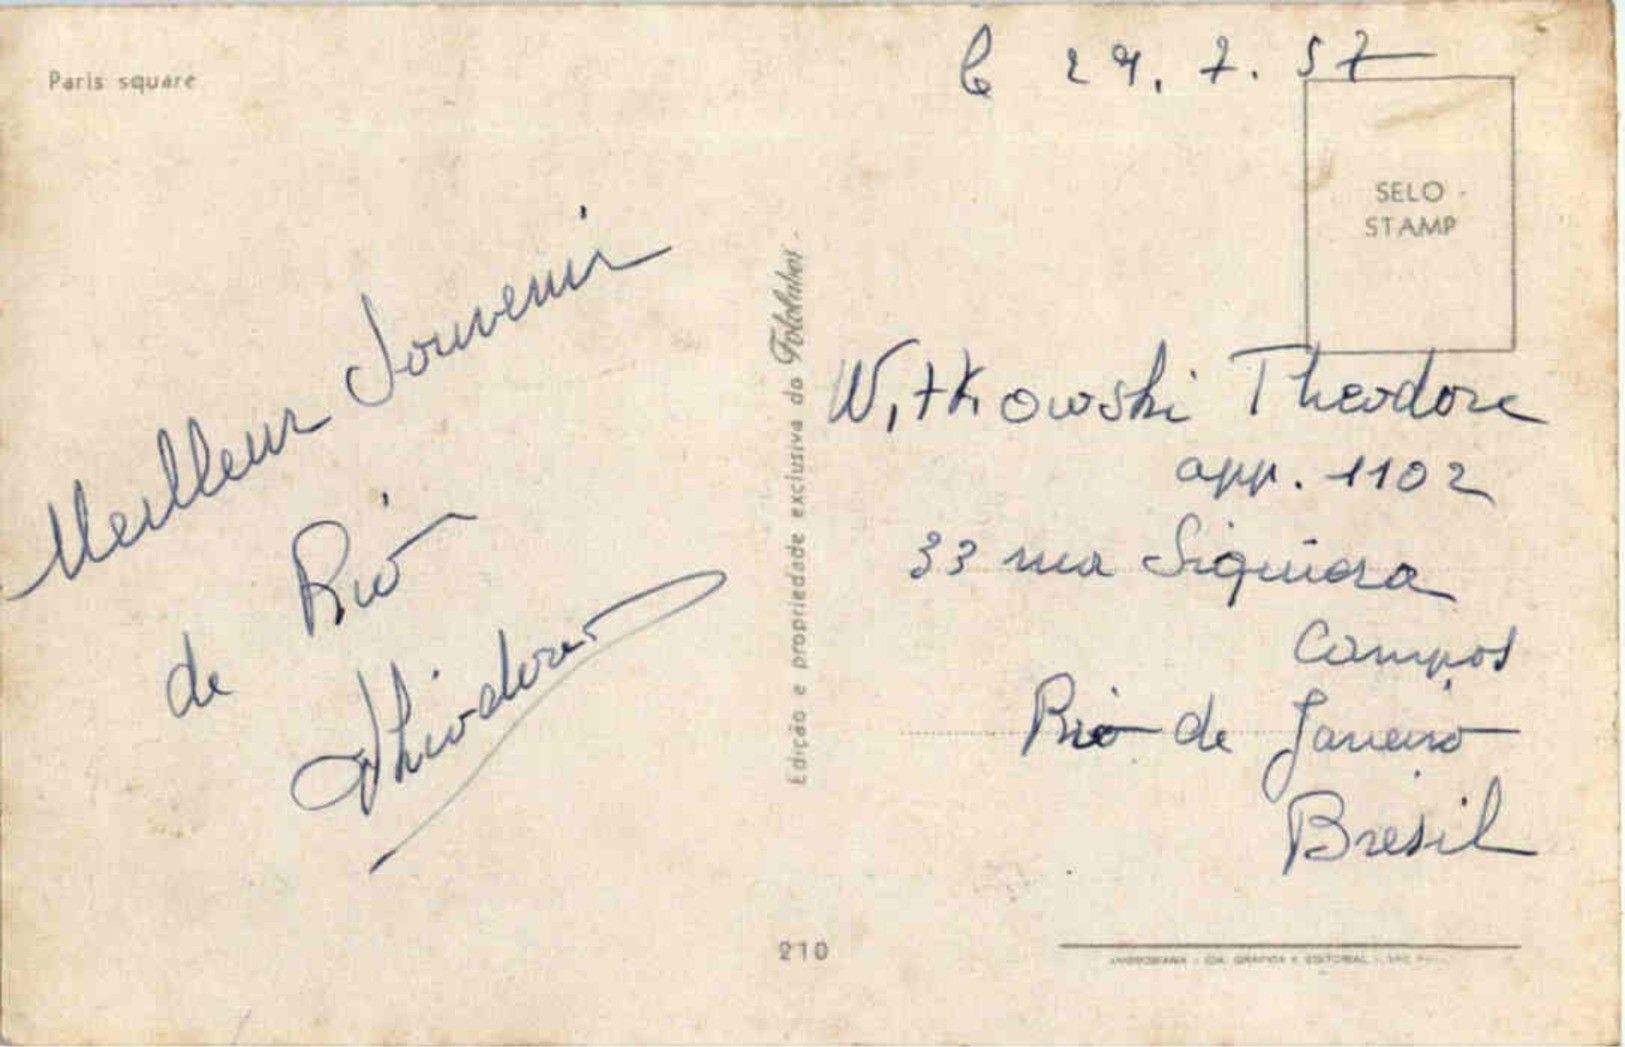 Paris square
le 29.7.57
SELO
STAMP
Meilleur Souvenir
de Rio
Théodore
Edição e propriedade exclusiva da Fotolabor
Witkowski Theodore
app. 1102
33 rua Siquiera
Campos
Rio de Janeiro
Bresil
210
AMBROSIANA - CIA. GRÁFICA E EDITORIAL - SÃO